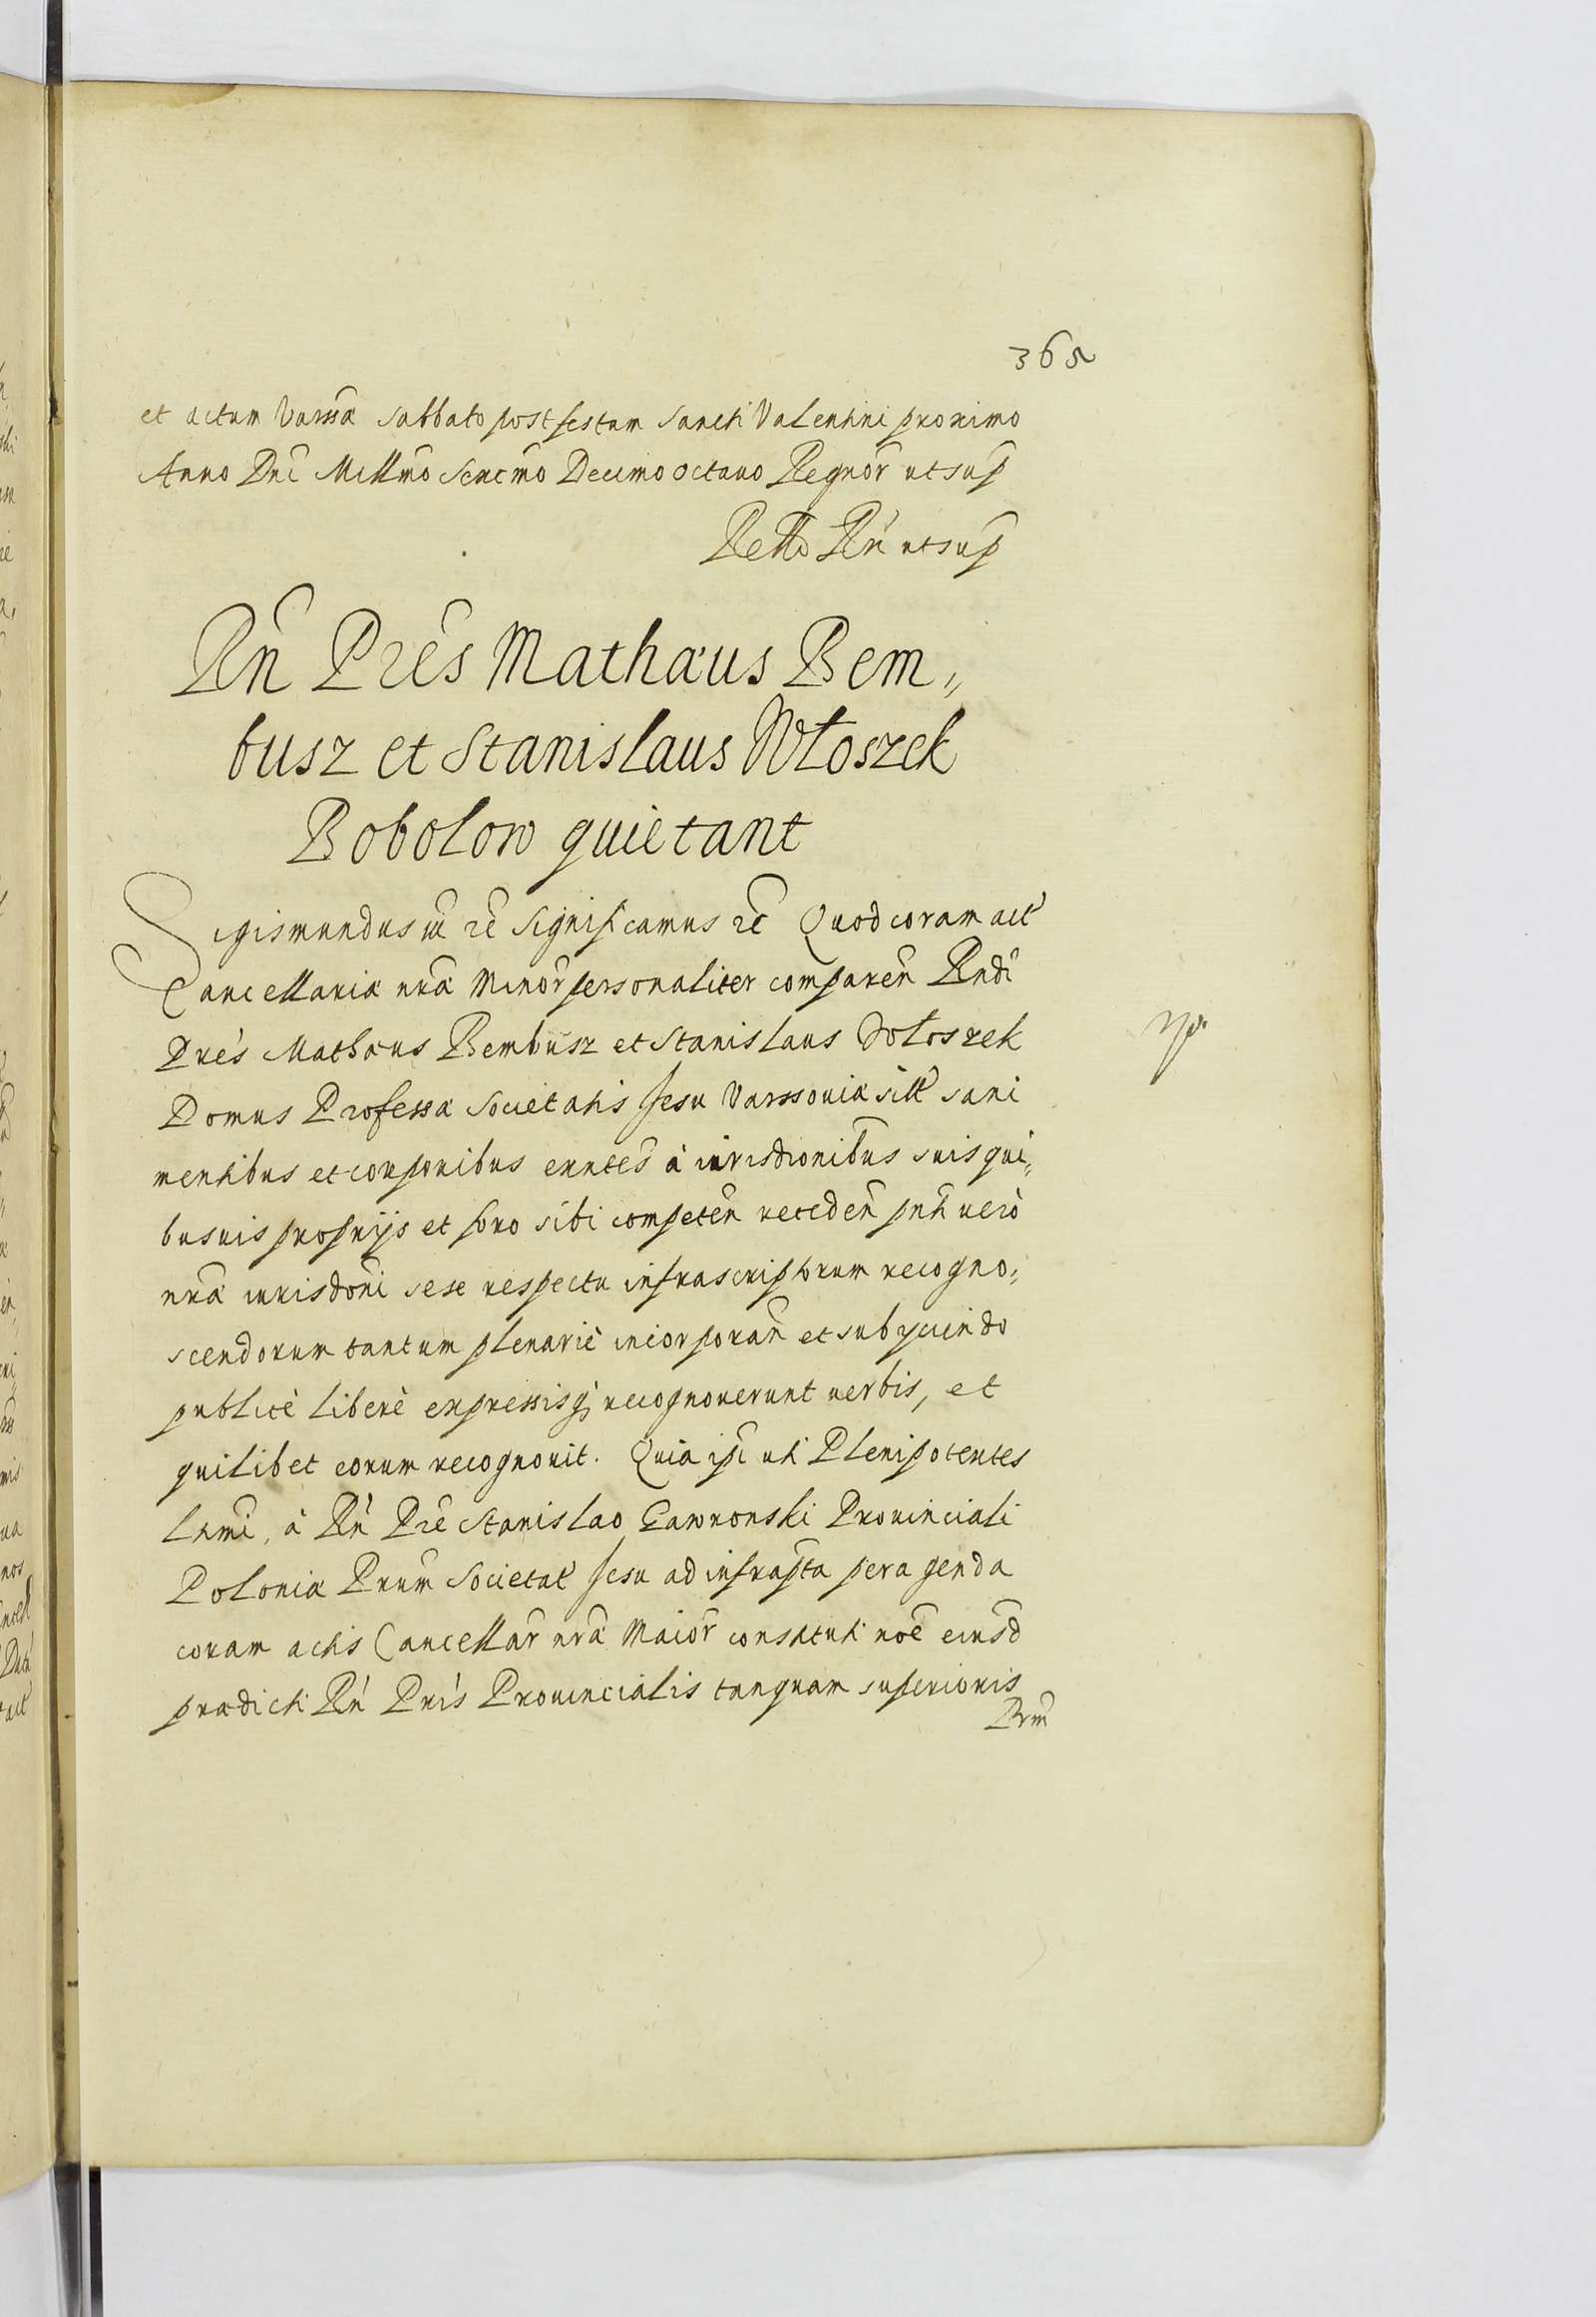 365
et actum Varssæ sabbato post festum sancti Valentini proximo
Anno Dni Millmo sexcmo Decimo octavo Regnor ut sup
Retto Rn ut sup
Rn Pres Mathæus Bem„
busz et Stanislaus Włoszek
Bobolow quietant
Sigismundus III rc significamus rc Quod coram act
Cancellariæ nræ Minor personaliter comparen Rndi
Pres Mathæus Bembusz et Stanislaus Włoszek
Domus Professæ Societatis Jesu Varssouiæ sitt sani
mentibus et corporibus exntes à iurisdionibus suis qui„
busuis proprijs et foro sibi competen receden pnti uerò
nræ iurisdoni sese respectu infrascriptorum recogno„
scendorum tantum plenariè incorporan et subyciendo
publicè liberè expressisq; recognouerunt uerbis, et
quilibet eorum recognouit. Quia ipi uti Plenipotentes
lrmi, à Rn Pre Stanislao Gawronski Prouinciali
Poloniæ Prum Societat Jesu ad infrapta peragenda
coram actis Cancellar nræ Maior constituti noe eiusd
prædicti Rn Pris Prouincialis tanquam superioris
Prm